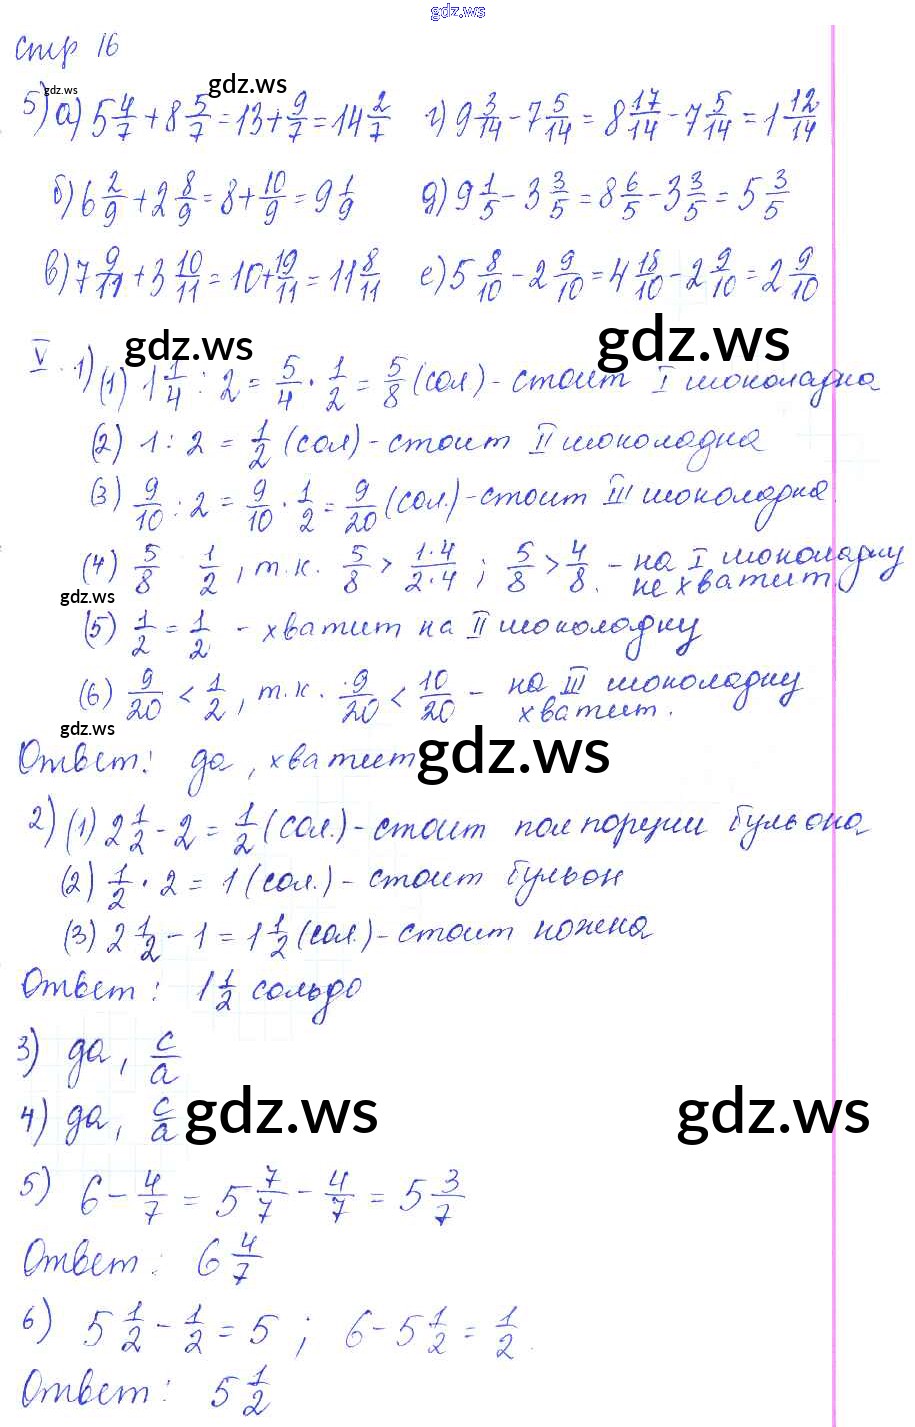 gdz.ws
стр 16
gdz.ws gdz.ws
5) а) 5 4/7 + 8 5/7 = 13 + 9/7 = 14 2/7 г) 9 3/14 - 7 5/14 = 8 17/14 - 7 5/14 = 1 12/14
б) 6 2/9 + 2 8/9 = 8 + 10/9 = 9 1/9 д) 9 1/5 - 3 3/5 = 8 6/5 - 3 3/5 = 5 3/5
в) 7 9/11 + 3 10/11 = 10 + 19/11 = 11 8/11 е) 5 8/10 - 2 9/10 = 4 18/10 - 2 9/10 = 2 9/10
gdz.ws gdz.ws
V. 1) (1) 1 1/4 : 2 = 5/4 · 1/2 = 5/8 (сол) - стоит I шоколадка
(2) 1 : 2 = 1/2 (сол) - стоит II шоколадка
(3) 9/10 : 2 = 9/10 · 1/2 = 9/20 (сол.) - стоит III шоколадка.
(4) 5/8 1/2, т.к. 5/8 > 1·4/2·4 ; 5/8 > 4/8. - на I шоколадку не хватит.
gdz.ws
(5) 1/2 = 1/2 - хватит на II шоколадку
(6) 9/20 < 1/2, т.к. 9/20 < 10/20 - на III шоколадку хватит.
gdz.ws
Ответ: да, хватит gdz.ws
2) (1) 2 1/2 - 2 = 1/2 (сол.) - стоит пол порции бульона
(2) 1/2 · 2 = 1 (сол.) - стоит бульон
(3) 2 1/2 - 1 = 1 1/2 (сол.) - стоит ножка
Ответ: 1 1/2 сольдо
3) да, c/a
4) да, c/a gdz.ws gdz.ws
5) 6 - 4/7 = 5 7/7 - 4/7 = 5 3/7
Ответ: 6 4/7
6) 5 1/2 - 1/2 = 5 ; 6 - 5 1/2 = 1/2.
Ответ: 5 1/2